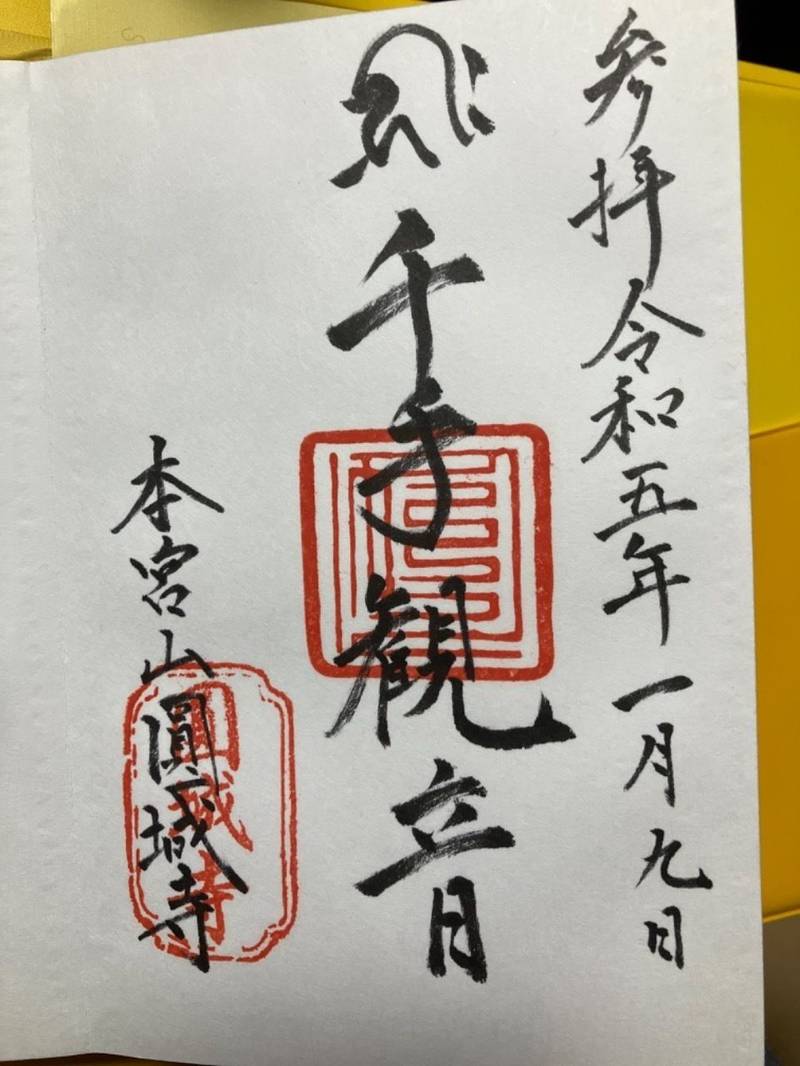 参拝 令和五年 一月九日
千手観音
本宮山圓城寺
圓城寺